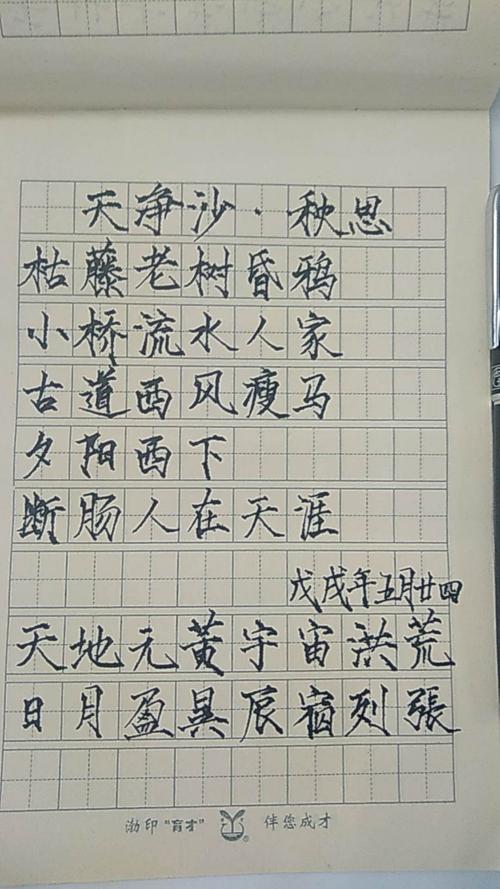 天净沙·秋思
枯藤老树昏鸦
小桥流水人家
古道西风瘦马
夕阳西下
断肠人在天涯
戊戌年五月廿四
天地元黄宇宙洪荒
日月盈昃辰宿列張
渤印“育才” 伴您成才